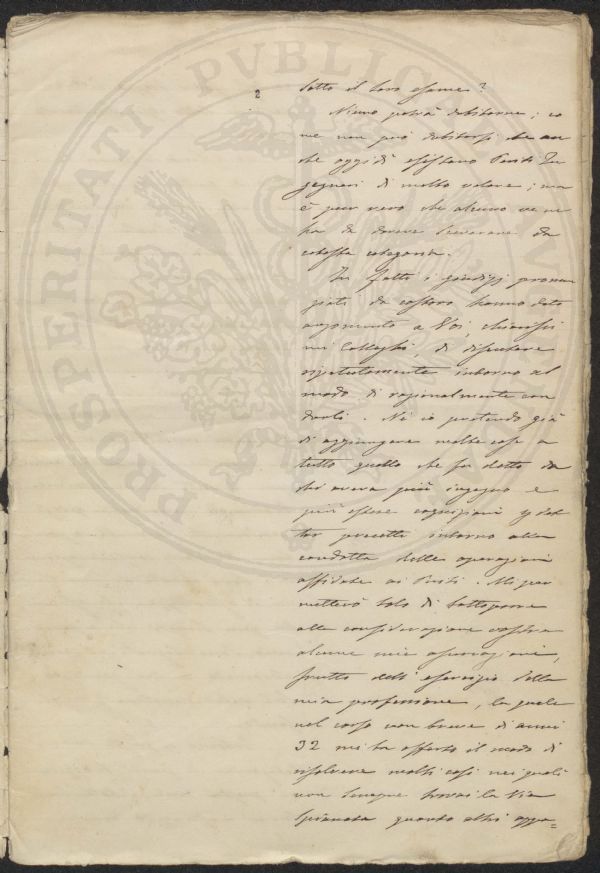 PROSPERITATI PVBLICAE AVGENDAE
2
sotto il loro esame?
Niuno potrà dubitarne; co
me non può dubitarsi che an
che oggidì esistano Periti In
gegneri di molto valore; ma
è pur vero che alcuno ve ne
ha da doversi sceverare da
cotesta categoria.
In fatti i giudizj pronun
ziati da costoro hanno dato
argomento a Voi, chiarissi
mi Colleghi, di discutere
ripetutamente intorno al
modo di razionalmente con
durli. Nè io pretendo già
di aggiungere molte cose a
tutto quello che fu detto da
chi aveva più ingegno e
più estese cognizioni
precetti intorno alla
condotta delle operazioni
affidate ai Periti. Mi per
metterò solo di sottoporre
alla considerazione vostra
alcune mie osservazioni,
frutto dell'esercizio della
mia professione, la quale
nel corso non breve di anni
32 mi ha offerto il modo di
risolvere molti casi nei quali
non sempre trovai la via
spianata quanto altri appa=